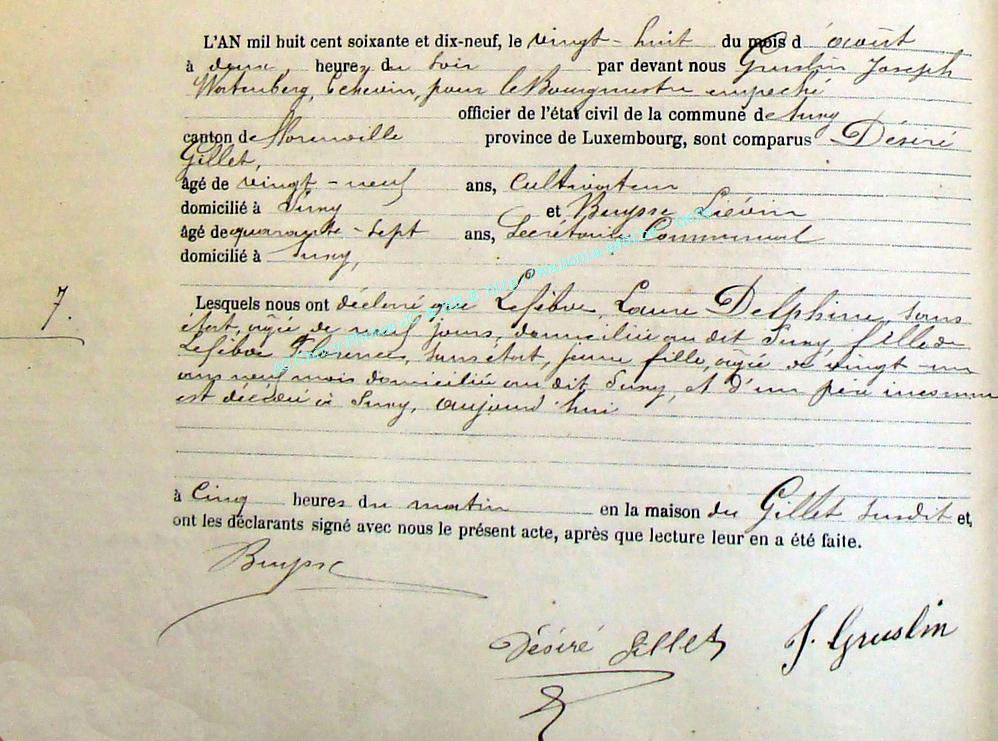 L'AN mil huit cent soixante et dix-neuf, le vingt-huit du mois d'août
à deux heures du soir par devant nous Gruslin Joseph
Wortenberg, Echevin, pour le Bourgmestre empeché
officier de l'état civil de la commune de Suny
canton de Florenville province de Luxembourg, sont comparus Désiré
Gillet,
âgé de vingt-neuf ans, Cultivateur
domicilié à Suny et Buysse Liévin
âgé de quarante-sept ans, Secrétaire Communal
domicilié à Suny,
7. Lesquels nous ont déclaré que Lefèbve, Laure Delphine, sans
état, agée de neuf jours, domiciliée au dit Suny, fille de
Lefèbve Florence, sans état, jeune fille, agée de vingt-un
ans neuf mois domiciliée au dit Suny, et d'un père inconnu
est décédée à Suny, aujourd'hui
à cinq heures du matin en la maison du Gillet susdit et,
ont les déclarants signé avec nous le présent acte, après que lecture leur en a été faite.
Buysse
Désiré Gillet J. Gruslin